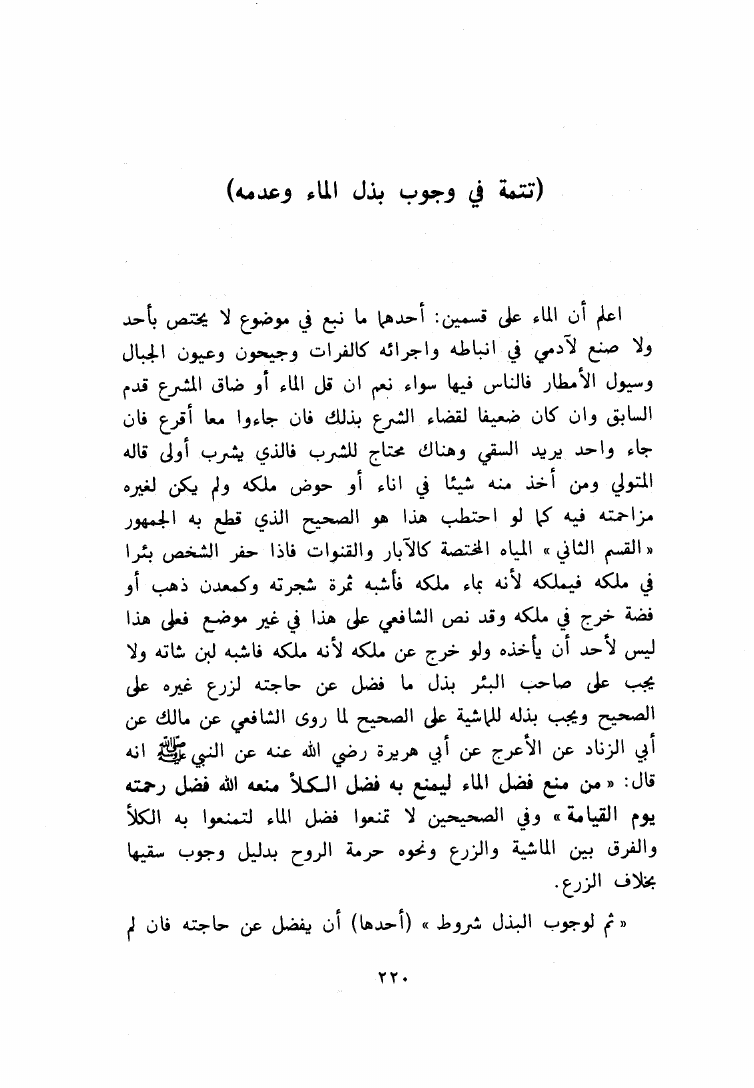 (تتمة في وجوب بذل الماء وعدمه)
اعلم أن الماء على قسمين: أحدهما ما نبع في موضوع لا يختص بأحد
ولا صنع لآدمي في انباطه واجرائه كالفرات وجيحون وعيون الجبال
وسيول الأمطار فالناس فيها سواء نعم ان قل الماء أو ضاق المشرع قدم
السابق وان كان ضعيفا لقضاء الشرع بذلك فان جاءوا معا أقرع فان
جاء واحد يريد السقي وهناك محتاج للشرب فالذي يشرب أولى قاله
المتولي ومن أخذ منه شيئا في اناء أو حوض ملكه ولم يكن لغيره
مزاحمته فيه كما لو احتطب هذا هو الصحيح الذي قطع به الجمهور
«القسم الثاني» المياه المختصة كالآبار والقنوات فاذا حفر الشخص بئرا
في ملكه فيملكه لأنه بماء ملكه فأشبه ثمرة شجرته وكمعدن ذهب أو
فضة خرج في ملكه وقد نص الشافعي على هذا في غير موضع فعلى هذا
ليس لأحد أن يأخذه ولو خرج عن ملكه لأنه ملكه فاشبه لبن شاته ولا
يجب على صاحب البئر بذل ما فضل عن حاجته لزرع غيره على
الصحيح ويجب بذله للماشية على الصحيح لما روى الشافعي عن مالك عن
أبي الزناد عن الأعرج عن أبي هريرة رضي الله عنه عن النبي ﷺ انه
قال: «من منع فضل الماء ليمنع به فضل الكلأ منعه الله فضل رحمته
يوم القيامة» وفي الصحيحين لا تمنعوا فضل الماء لتمنعوا به الكلأ
والفرق بين الماشية والزرع ونحوه حرمة الروح بدليل وجوب سقيها
بخلاف الزرع.
«ثم لوجوب البذل شروط» (أحدها) أن يفضل عن حاجته فان لم
٢٢٠